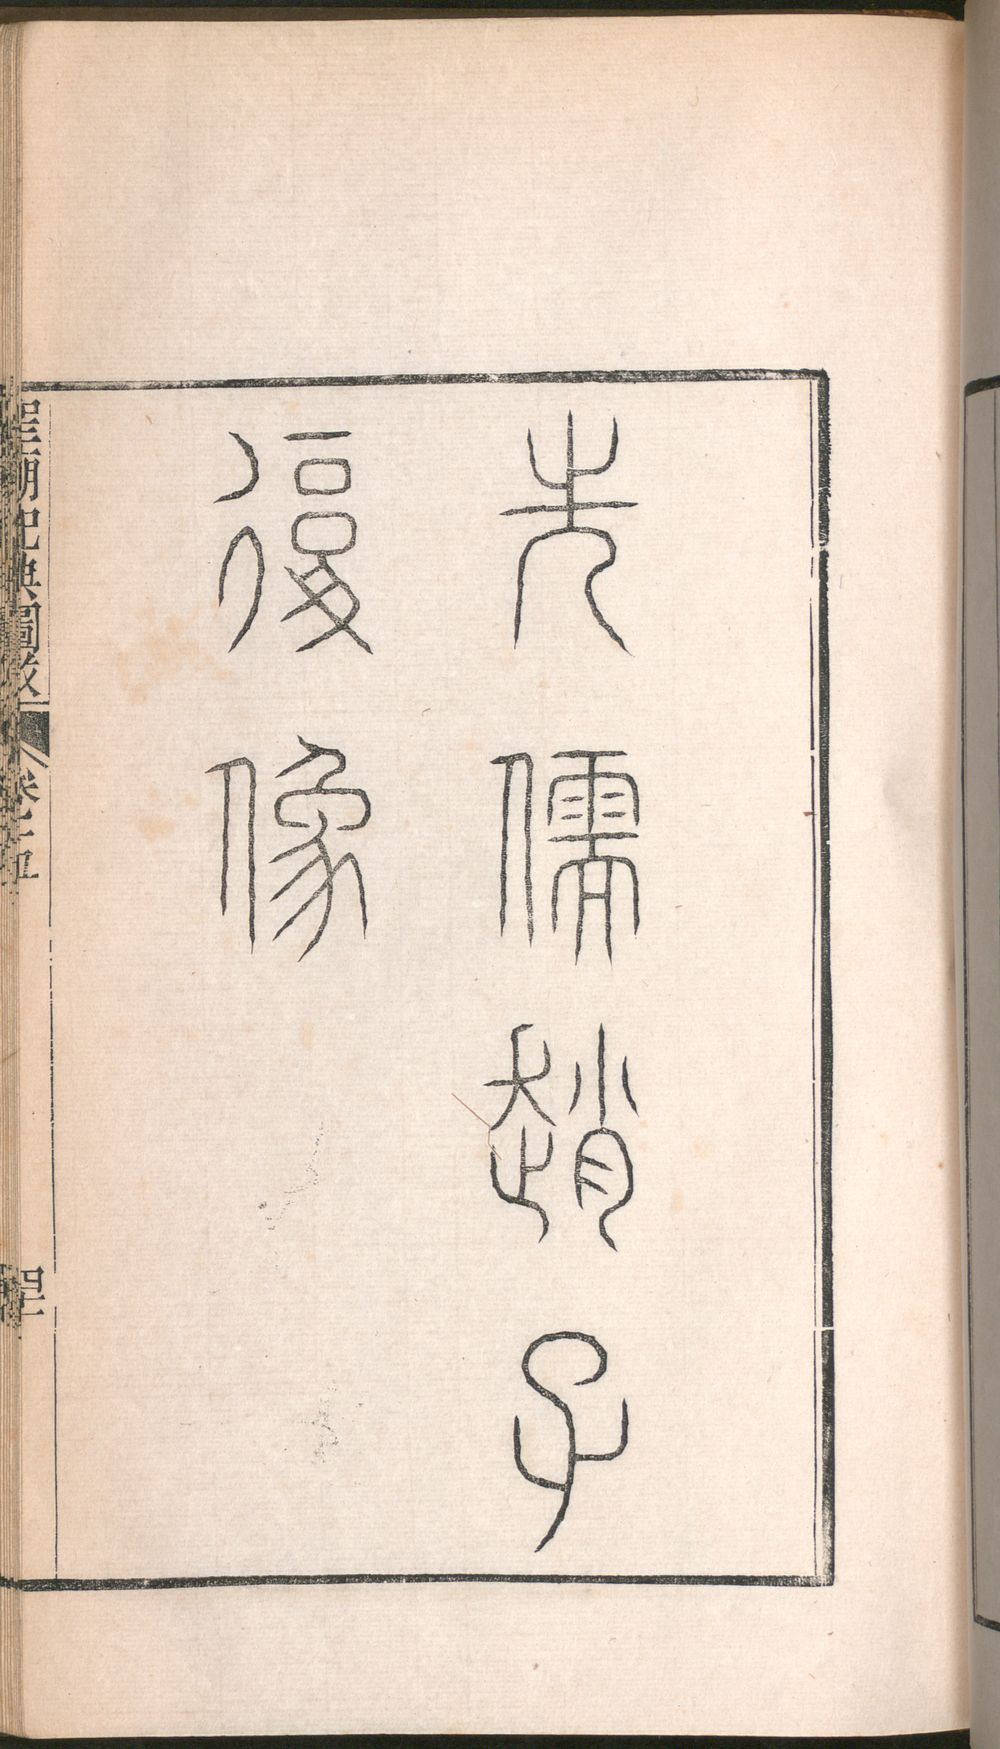 先儒趙子
復像
聖廟祀典圖攷
卷十五